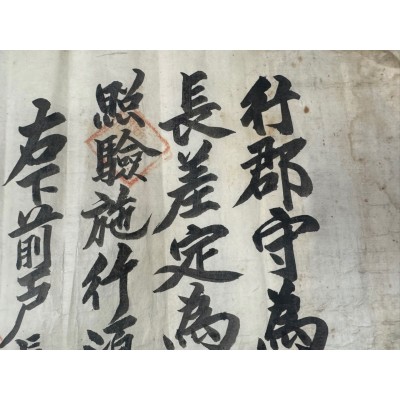 行郡守為
長差定為
照驗施行須
右下前戶長